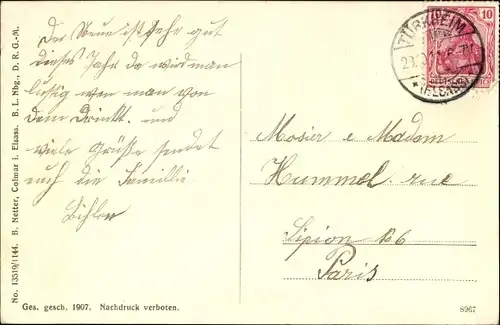 Der Neue ist sehr gut
dieses Jahr da wird man
lustig wen man von
dem Drinkt. und
viele Grüsse sendet
euch die Familie
Bihler
Mosier e Madam
Hummel rue
Sipion No 6
Paris
TÜRKHEIM
(ELSASS)
10
No. 13519/1144. B. Netter, Colmar i. Elsass. B. L. Nbg., D. R. G.-M.
Ges. gesch. 1907. Nachdruck verboten.
8967